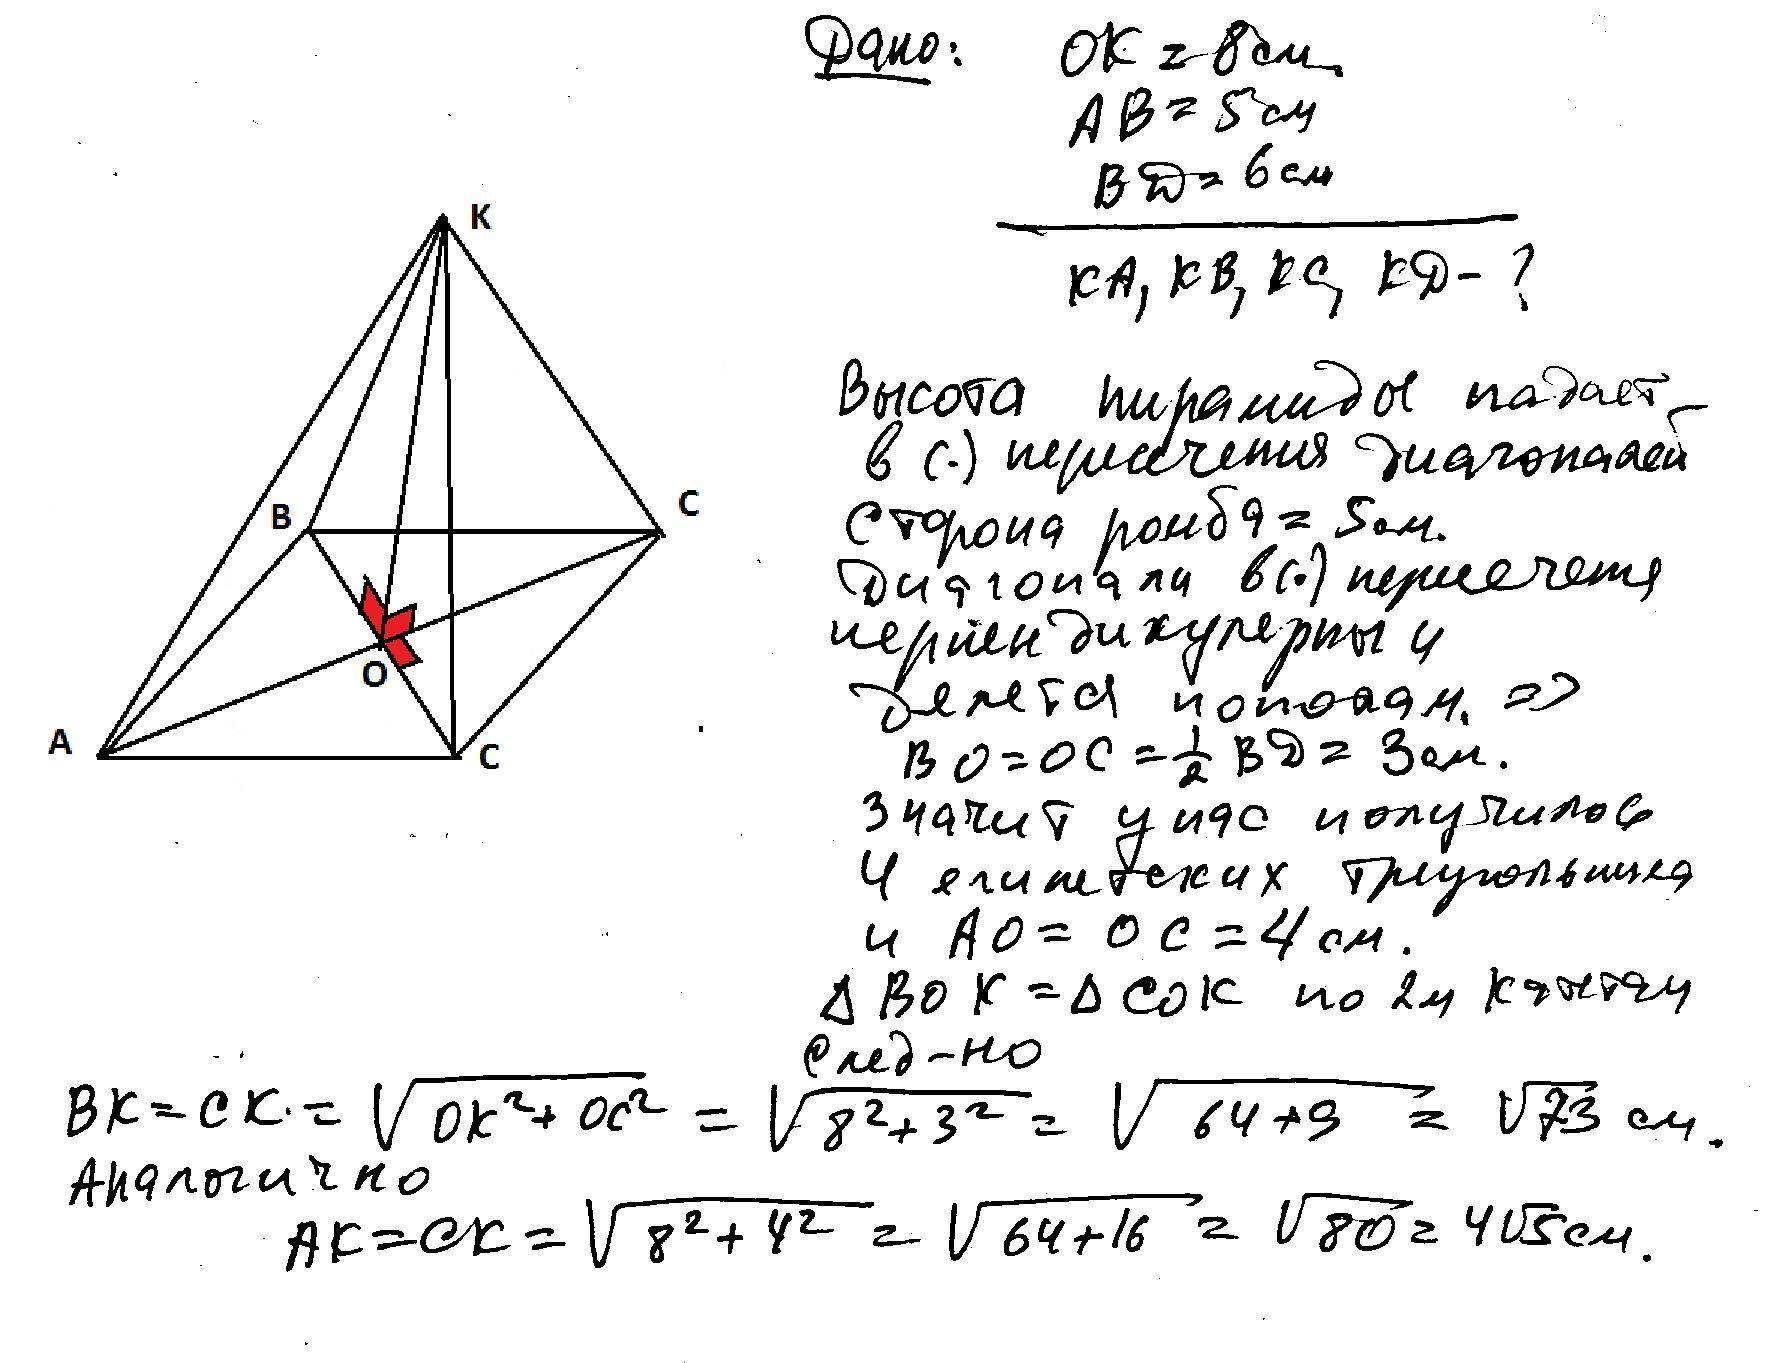 Дано: ОК = 8 см.
АВ = 5 см
ВД = 6 см
КА, КВ, КС, КД - ?
K
B
C
O
A
C
Высота пирамиды падает
в (.) пересечения диагоналей
Сторона ромба = 5 см.
Диагонали в (.) пересечения
перпендикулярны и
делятся пополам. =>
ВО = ОС = 1/2 ВД = 3 см.
Значит у нас получилось
4 египетских треугольника
и АО = ОС = 4 см.
Δ ВОК = Δ СОК по 2м катетам
след-но
ВК = СК = √(ОК² + ОС²) = √(8² + 3²) = √(64 + 9) = √73 см.
Аналогично
АК = СК = √(8² + 4²) = √(64 + 16) = √80 = 4√5 см.